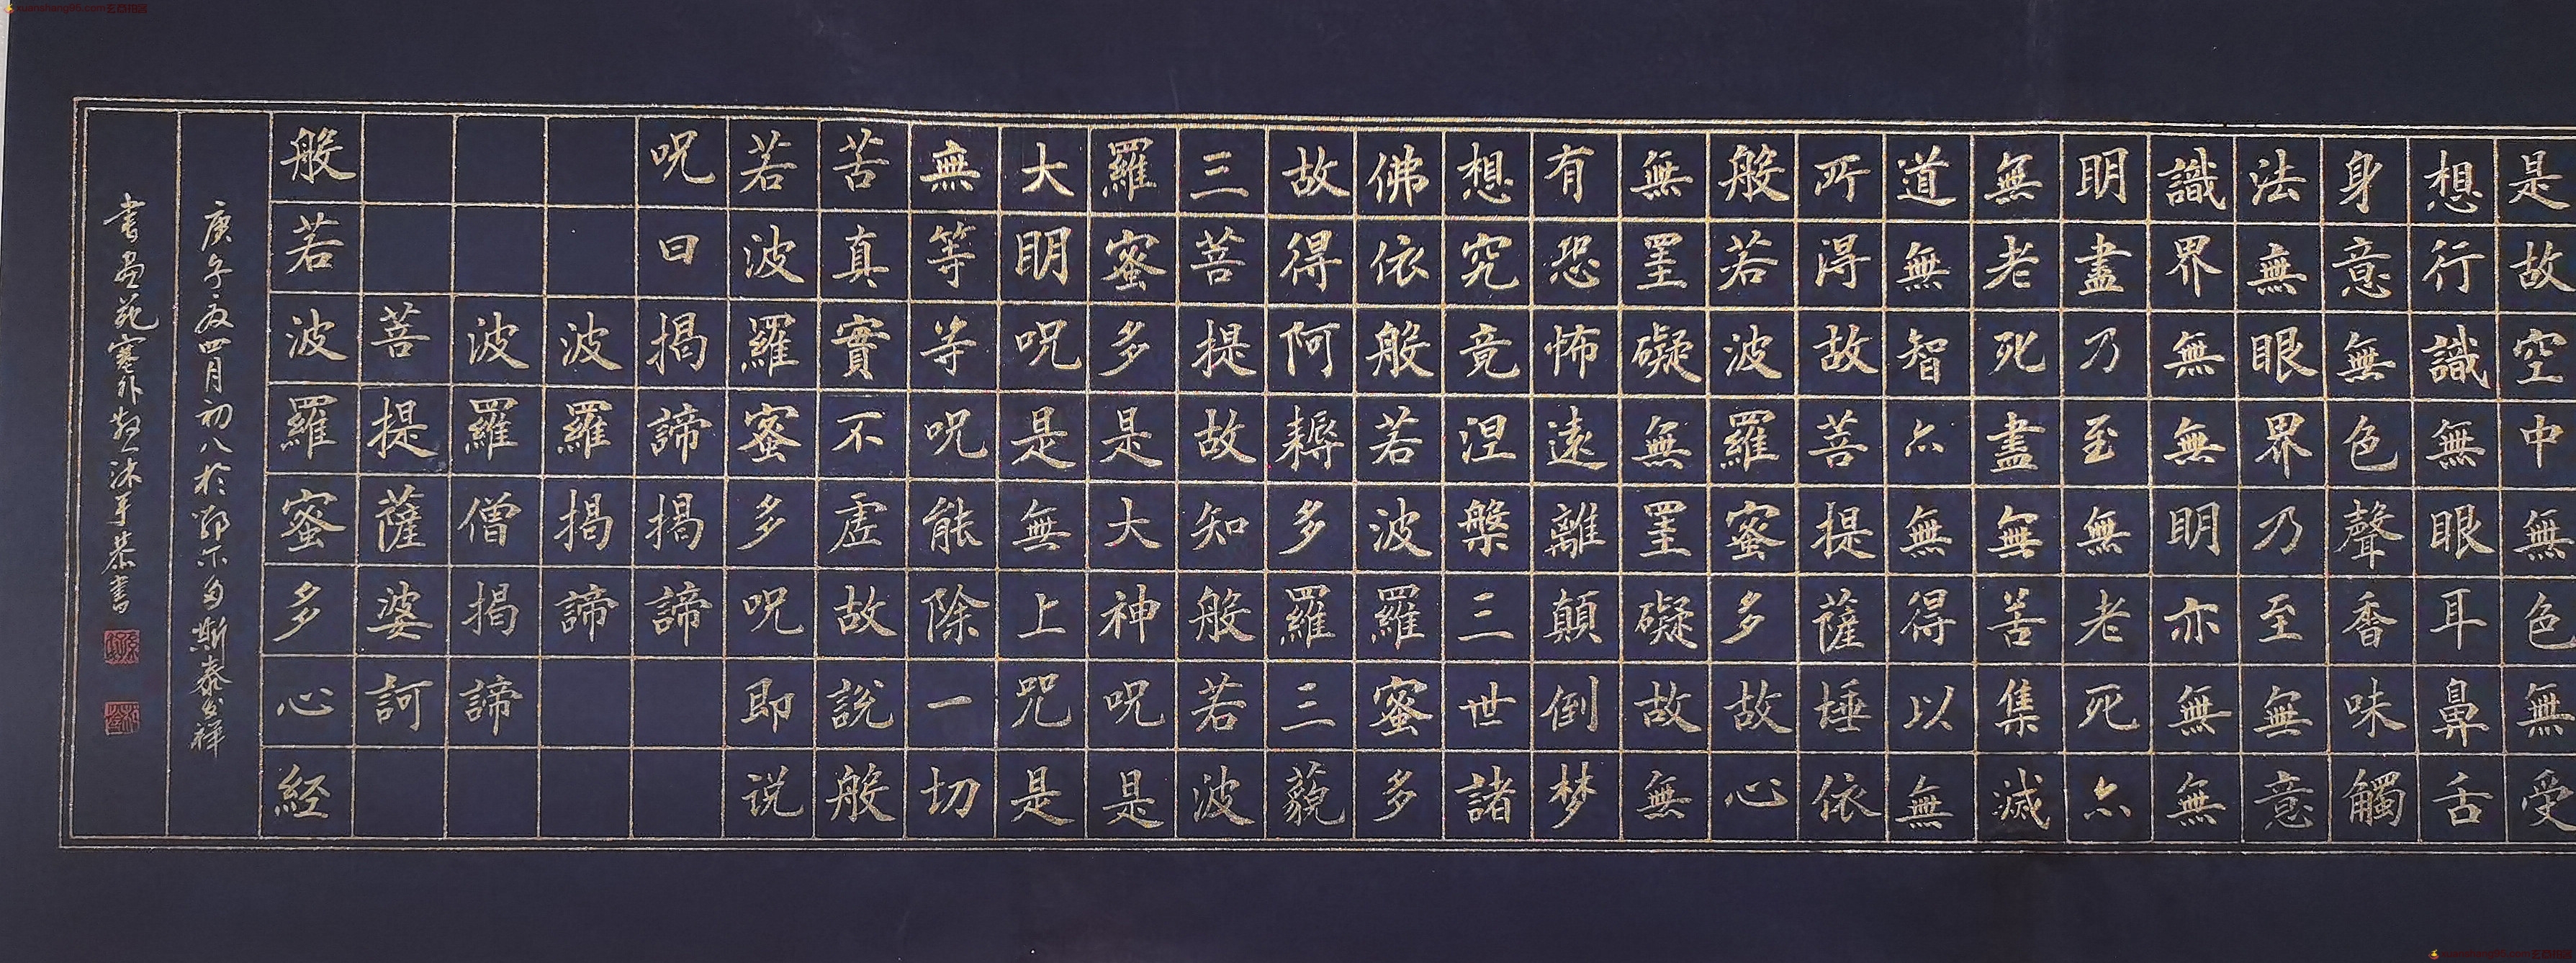 是故空中無色無受
想行識無眼耳鼻舌
身意無色聲香味觸
法無眼界乃至無意
識界無無明亦無無
明盡乃至無老死亦
無老死盡無苦集滅
道無智亦無得以無
所得故菩提薩埵依
般若波羅蜜多故心
無罣礙無罣礙故無
有恐怖遠離顛倒梦
想究竟涅槃三世諸
佛依般若波羅蜜多
故得阿耨多羅三藐
三菩提故知般若波
羅蜜多是大神呪是
大明呪是無上咒是
無等等呪能除一切
苦真實不虛故說般
若波羅蜜多呪即说
呪曰揭諦揭諦
波羅揭諦
波羅僧揭諦
菩提薩婆訶
般若波羅蜜多心経
庚子夏四月初八於鄂尔多斯泰发祥
書画苑塞外沐手恭書